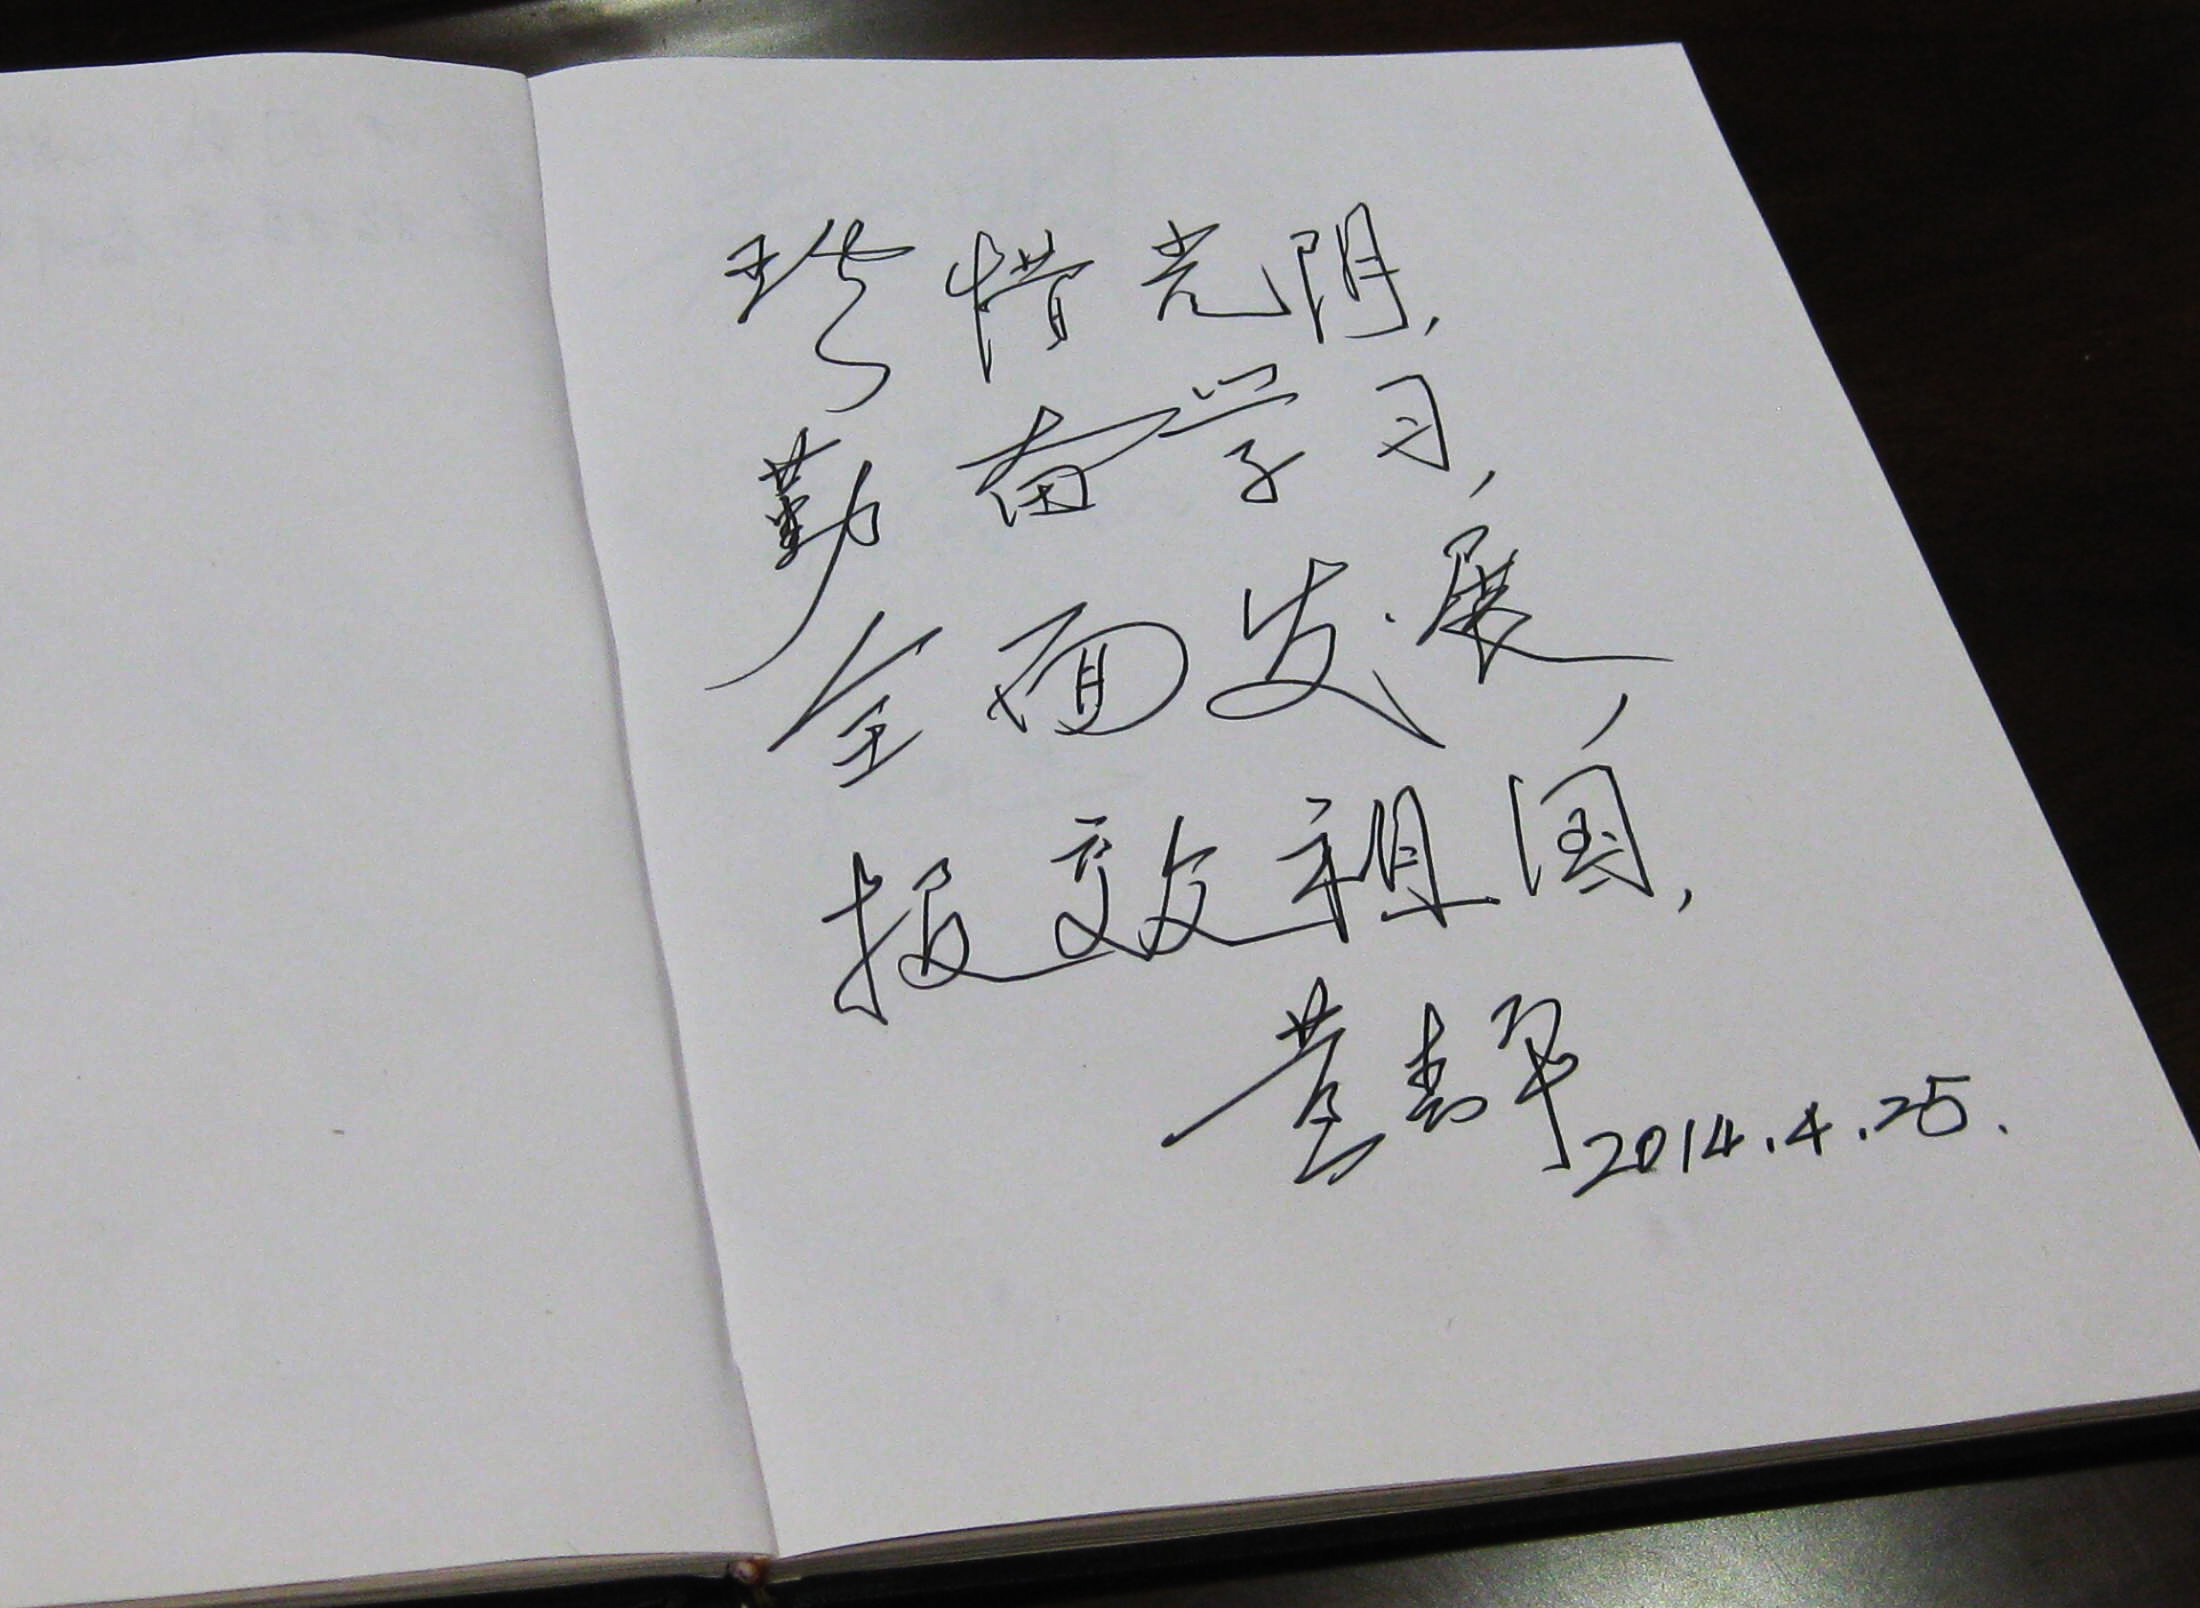 珍惜光阴,
勤奋学习,
全面发展,
报效祖国,
2014.4.25.